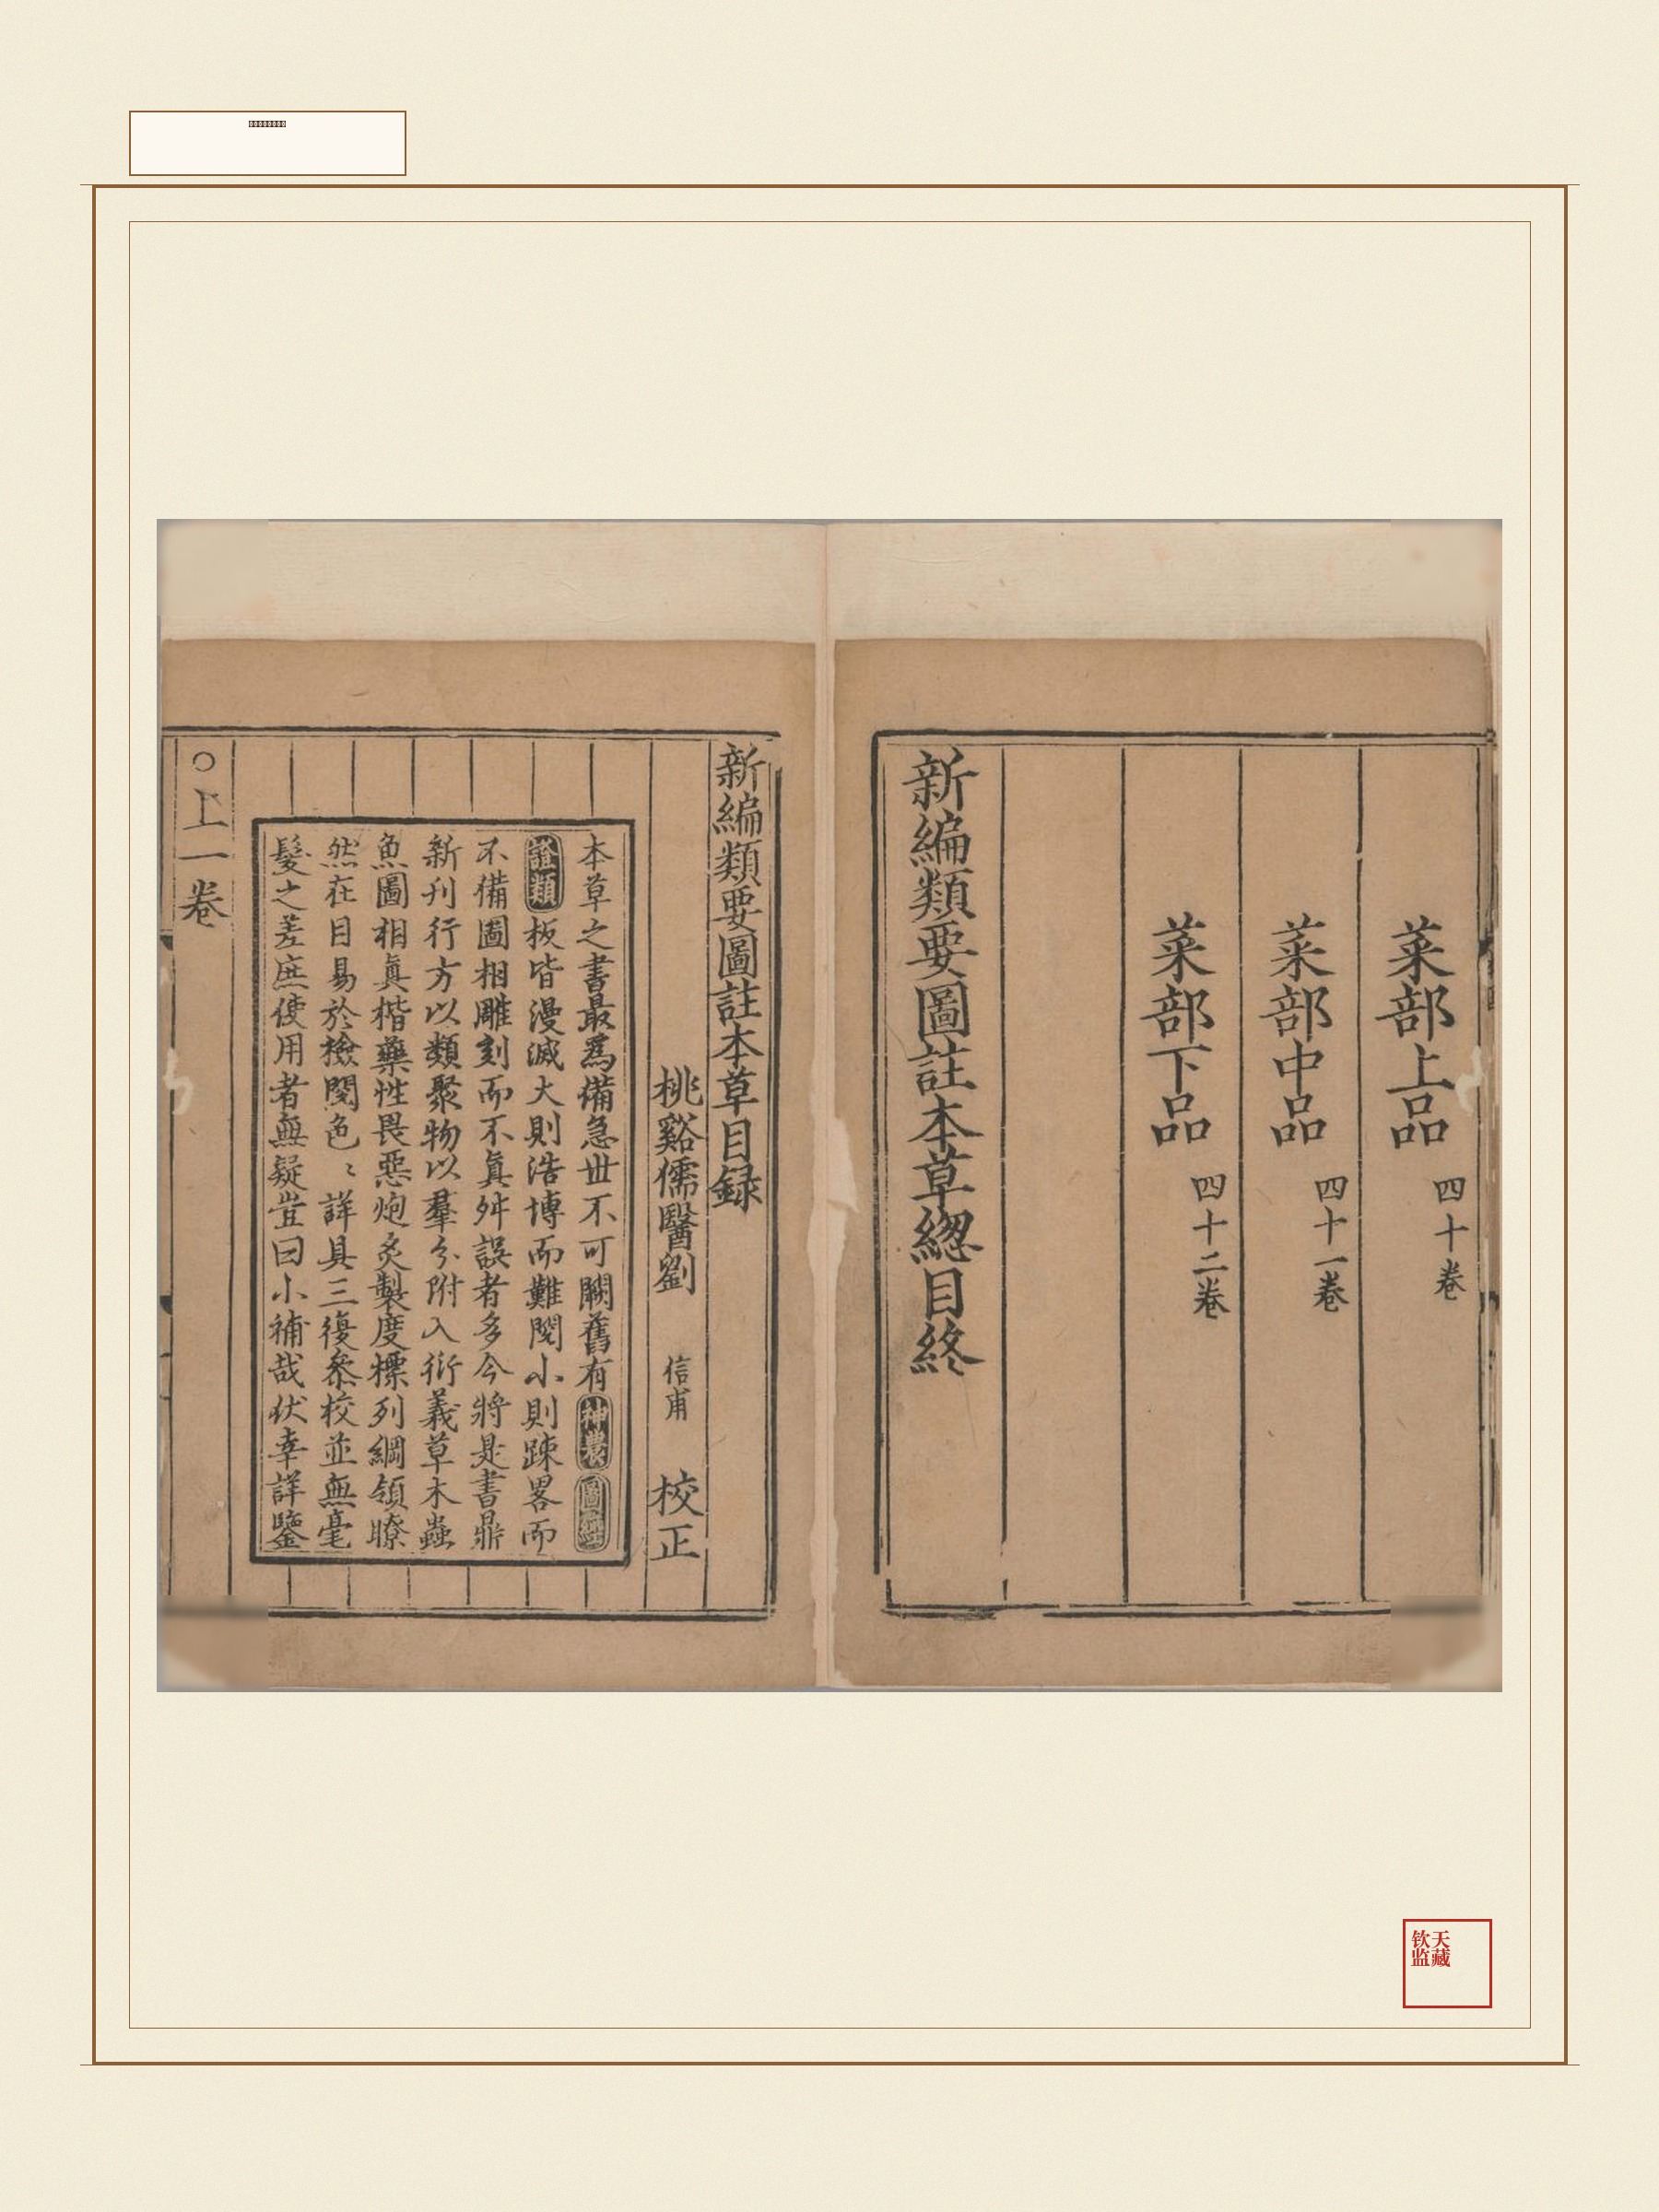 菜部上品 四十卷
菜部中品 四十一卷
菜部下品 四十二卷
新編類要圖註本草緫目終
新編類要圖註本草目録
桃谿儒醫劉 信甫 校正
本草之書最爲備急丗不可闕舊有神農圖經
證類板皆漫滅大則浩博而難閱小則踈畧而
不備圖相雕刻而不真舛誤者多今將是書鼎
新刋行方以類聚物以羣分附入衍義草木蟲
魚圖相真楷藥性畏惡炮炙製度摽列綱領瞭
然在目易於檢閱色〻詳具三復叅校並無毫
髮之差庶使用者無疑豈曰小補哉伏幸詳鑒
○上一卷
天藏
钦监